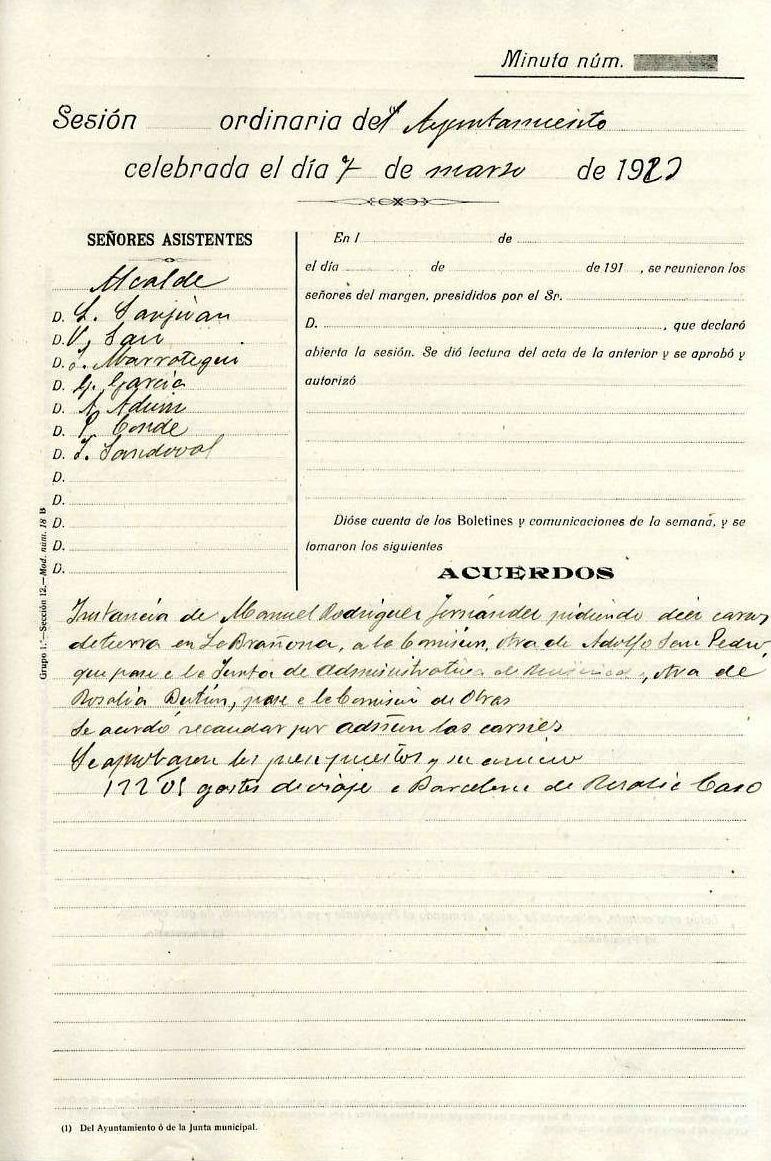 Minuta núm.
Sesión ordinaria del Ayuntamiento
celebrada el día 7 de marzo de 192
SEÑORES ASISTENTES
Alcalde
D. L. Sanjuan
D. V. San
D. J. Marrotegui
D. G. García
D. A.
D. P. Conde
D. J. Sandoval
D.
D.
D.
D.
D.
En l de
el día de de 191 , se reunieron los
señores del margen, presididos por el Sr.
D. , que declaró
abierta la sesión. Se dió lectura del acta de la anterior y se aprobó y
autorizó
Dióse cuenta de los Boletines y comunicaciones de la semana, y se
tomaron los siguientes
ACUERDOS
Instancia de Manuel Rodriguez Fernández pidiendo diez carros
de tierra en La Brañona, a la Comisión, otra de Adolfo San Pedro,
que pase a la Junta de administrativa de , otra de
Rosalia , pase a la Comisión de Obras
Se acordó recaudar por admon las carnes
Se aprobaron los presupuestos y su anuncio
gastos de viaje a Barcelona de Rosalia Caso
Grupo 1.º—Sección 12.—Mod. núm. 18 B
(1) Del Ayuntamiento ò de la Junta municipal.